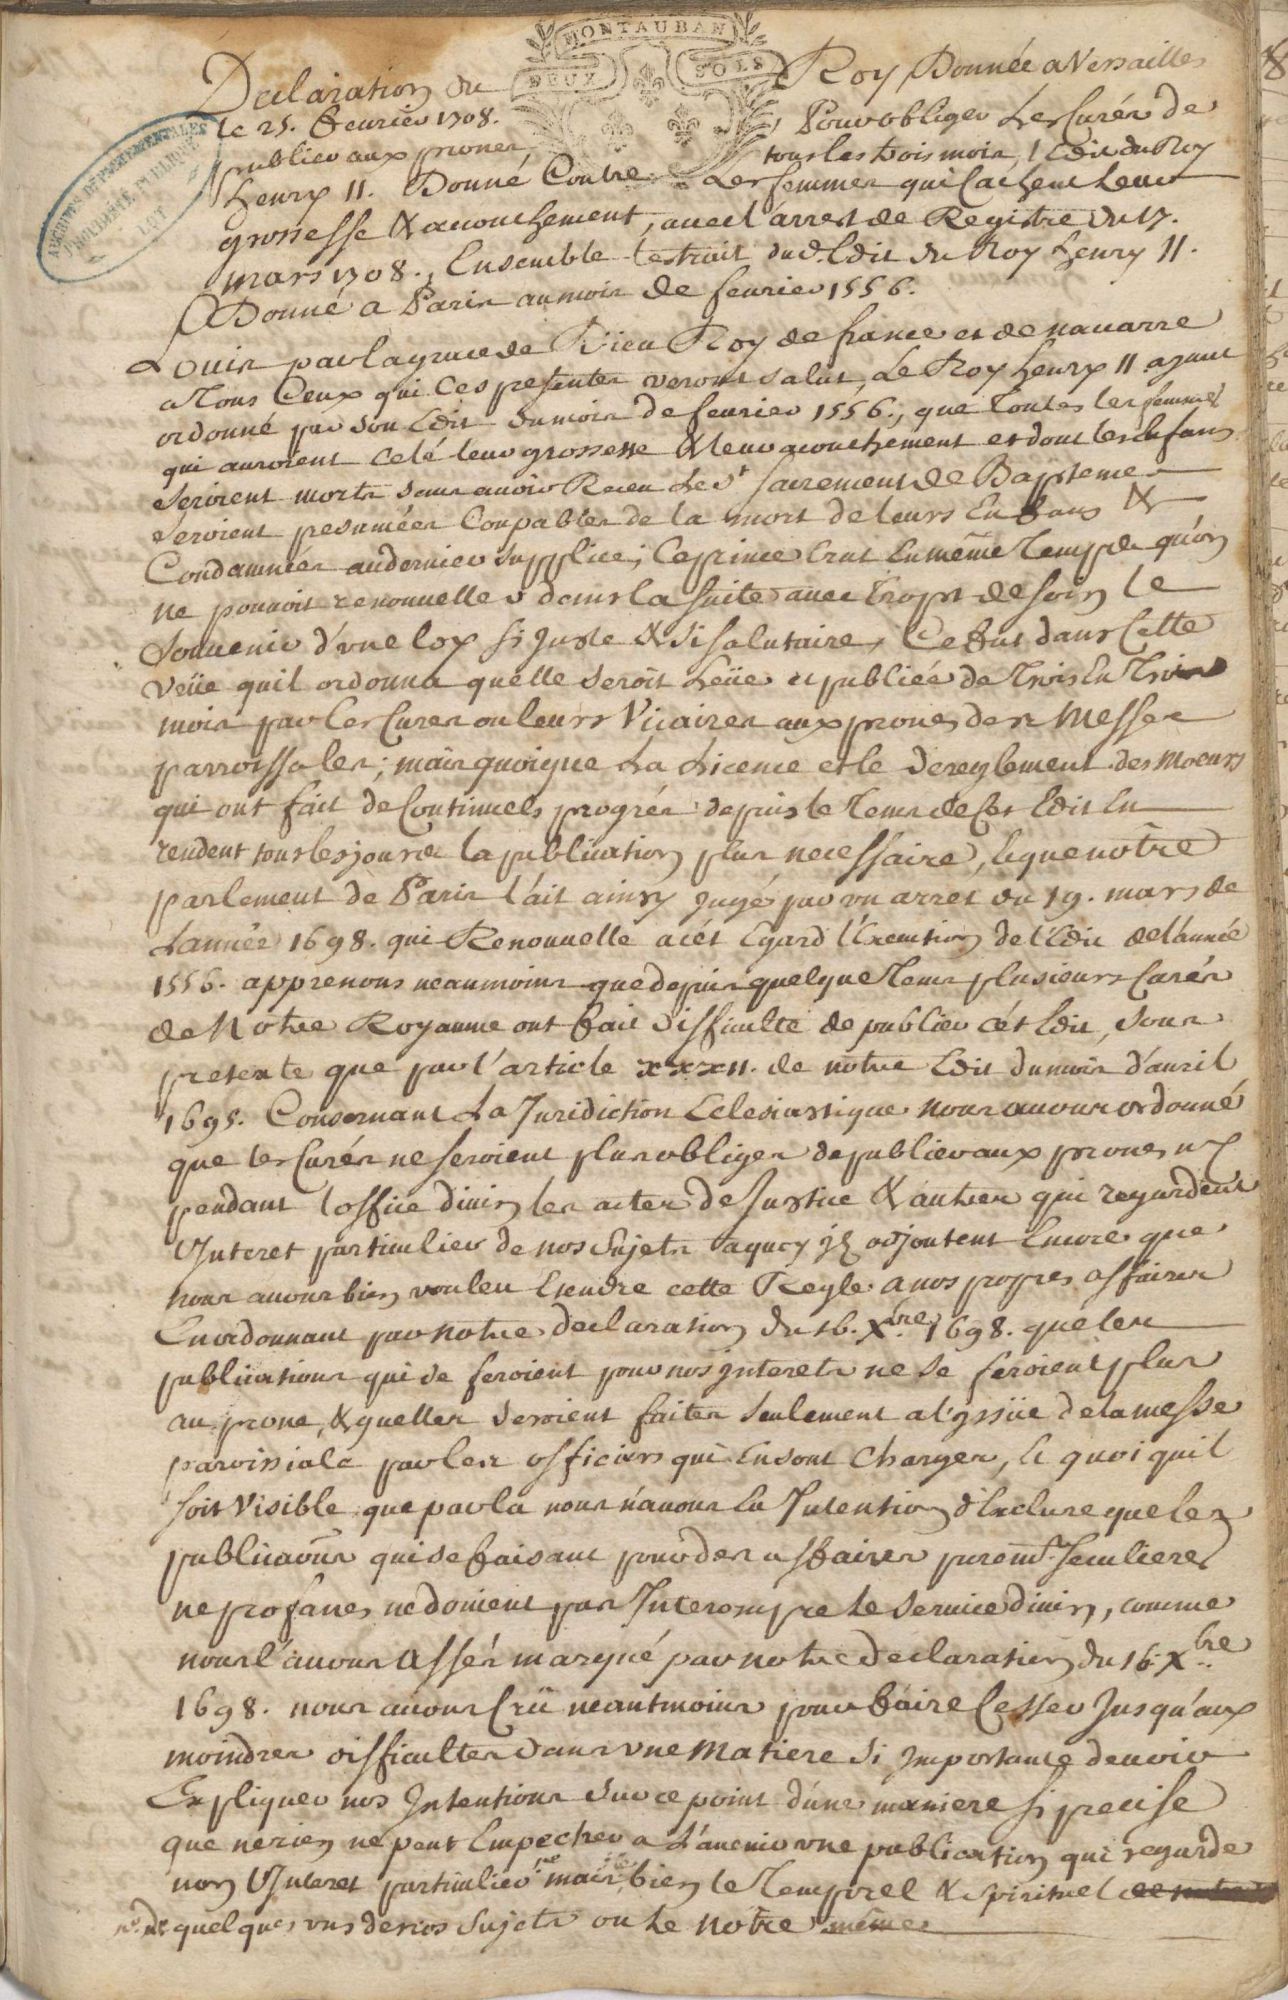 MONTAUBAN
DEUX SOLS
ARCHIVES DEPARTEMENTALES
REPUBLIQUE
LOT
Declaration du Roy Donnée a Versailles
le 25. feurier 1708. Pour obliger les Curés de
publier aux prones tous les trois mois, l'Edit du Roy
henry II. Donné Contre Les femmes qui Cachent leur
grossesse & acouchement, auec l'arrest de Registre du 17.
mars 1708., Ensemble lextrait dud. Edit du Roy henry II.
Donné a Paris au mois de feurier 1556.
Louis par la grace de Dieu Roy de france et de nauarre
a Tous Ceux qui Ces presentes veront salut, Le Roy henry II ayant
ordonné par son Edit du mois de feurier 1556., que Toutes les femmes
qui auroient celé leur grossesse & leur acouchement et dont les Enfans
seroient morts sans auoir Receu le St sacrement de Bapteme
seroient presumées Coupables de la mort de leurs Enfans &
Condamnées au dernier supplice; Ce prince Crut En même Temps qu'on
ne pouuoit renouueller dans la suite auec trop de soin le
souuenir d'vne loy si juste & si salutaire, Ce fut dans Cette
veüe quil ordonna quelle seroit leüe et publiée de Trois En Trois
mois par les Curés ou leurs Vicaires aux prones des Messes
parroissales; mais quoique La Licence et le dereglement des moeurs
qui ont fait de Continuels progrés depuis le Tems de Cet Edit En
rendent tous les jours la publication plus necessaire, & que nôtre
parlement de Paris l'ait ainsy jugé par vn arret du 19. mars de
L'année 1698. qui Renouuelle a cét Egard l'Execution de l'Edit de l'année
1556. apprenons neaumoins que depuis quelque Tems plusieurs Curés
de Notre Royaume ont fait difficulté de publier cét Edit, sous
pretexte que par l'article xxxii. de nôtre Edit du mois d'auril
1695. Consernant La Juridiction Eclesiastique nous auons ordonné
que les Curés ne seroient plus obliges de publier aux prones ny
pendant l'office diuin les actes de Justice & autres qui regardent
l'Interet particulier de nos sujets a quoy jls adjoutent Encore que
nous auons bien vouleu Etendre cette Regle a nos propres affaires
En ordonnant par notre declaration du 16. Xbre 1698. que les
publications qui se feroient pour nos interets ne se feroient plus
au prone, & quelles seroient faites seulement a l'yssüe de la messe
paroissiale par les officiers qui En sont Charges, & quoi quil
soit Visible que par la nous n'auons Eu Intention d'Exclure que les
publicaons qui se faisant pour des affaires puremt seculieres
ne profanes ne doiuent pas Interompre le seruice diuin, comme
nous l'auons assés marqué par notre declaration du 16. Xbre
1698. nous auons Crü neantmoins pour faire Cesser Jusqu'aux
moindres difficultes dans vne matiere si jmportante deuoir
Expliquer nos Intentions sur ce point d'une maniere si precise
que ne rien ne peut Empecher a L'auenir vne publication qui regarde
non l'Interet particulier mais bien le Temporel & spirituel
quelques vns de nos sujets ou le notre même